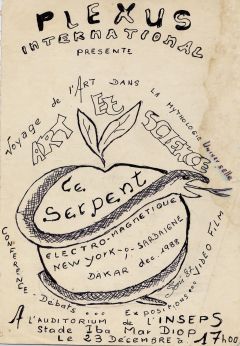 PLEXUS
INTERNATIONAL
PRESENTE
Voyage de l'ART DANS LA MYTHOLOGIE Universelle
ART ET SCIENCE
Le
Serpent
ELECTRO-MAGNETIQUE
NEW YORK-SARDAIGNE
DAKAR dec. 1988
CONFERENCE - Debats... Expositions
VIDEO FILM
A L'AUDITORIUM de L'INSEPS
Stade Iba Mar Diop
Le 23 Décembre à 17h00